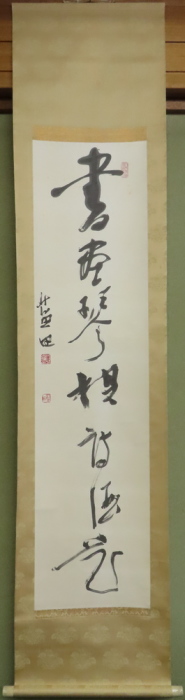 書画琴棋詩酒花